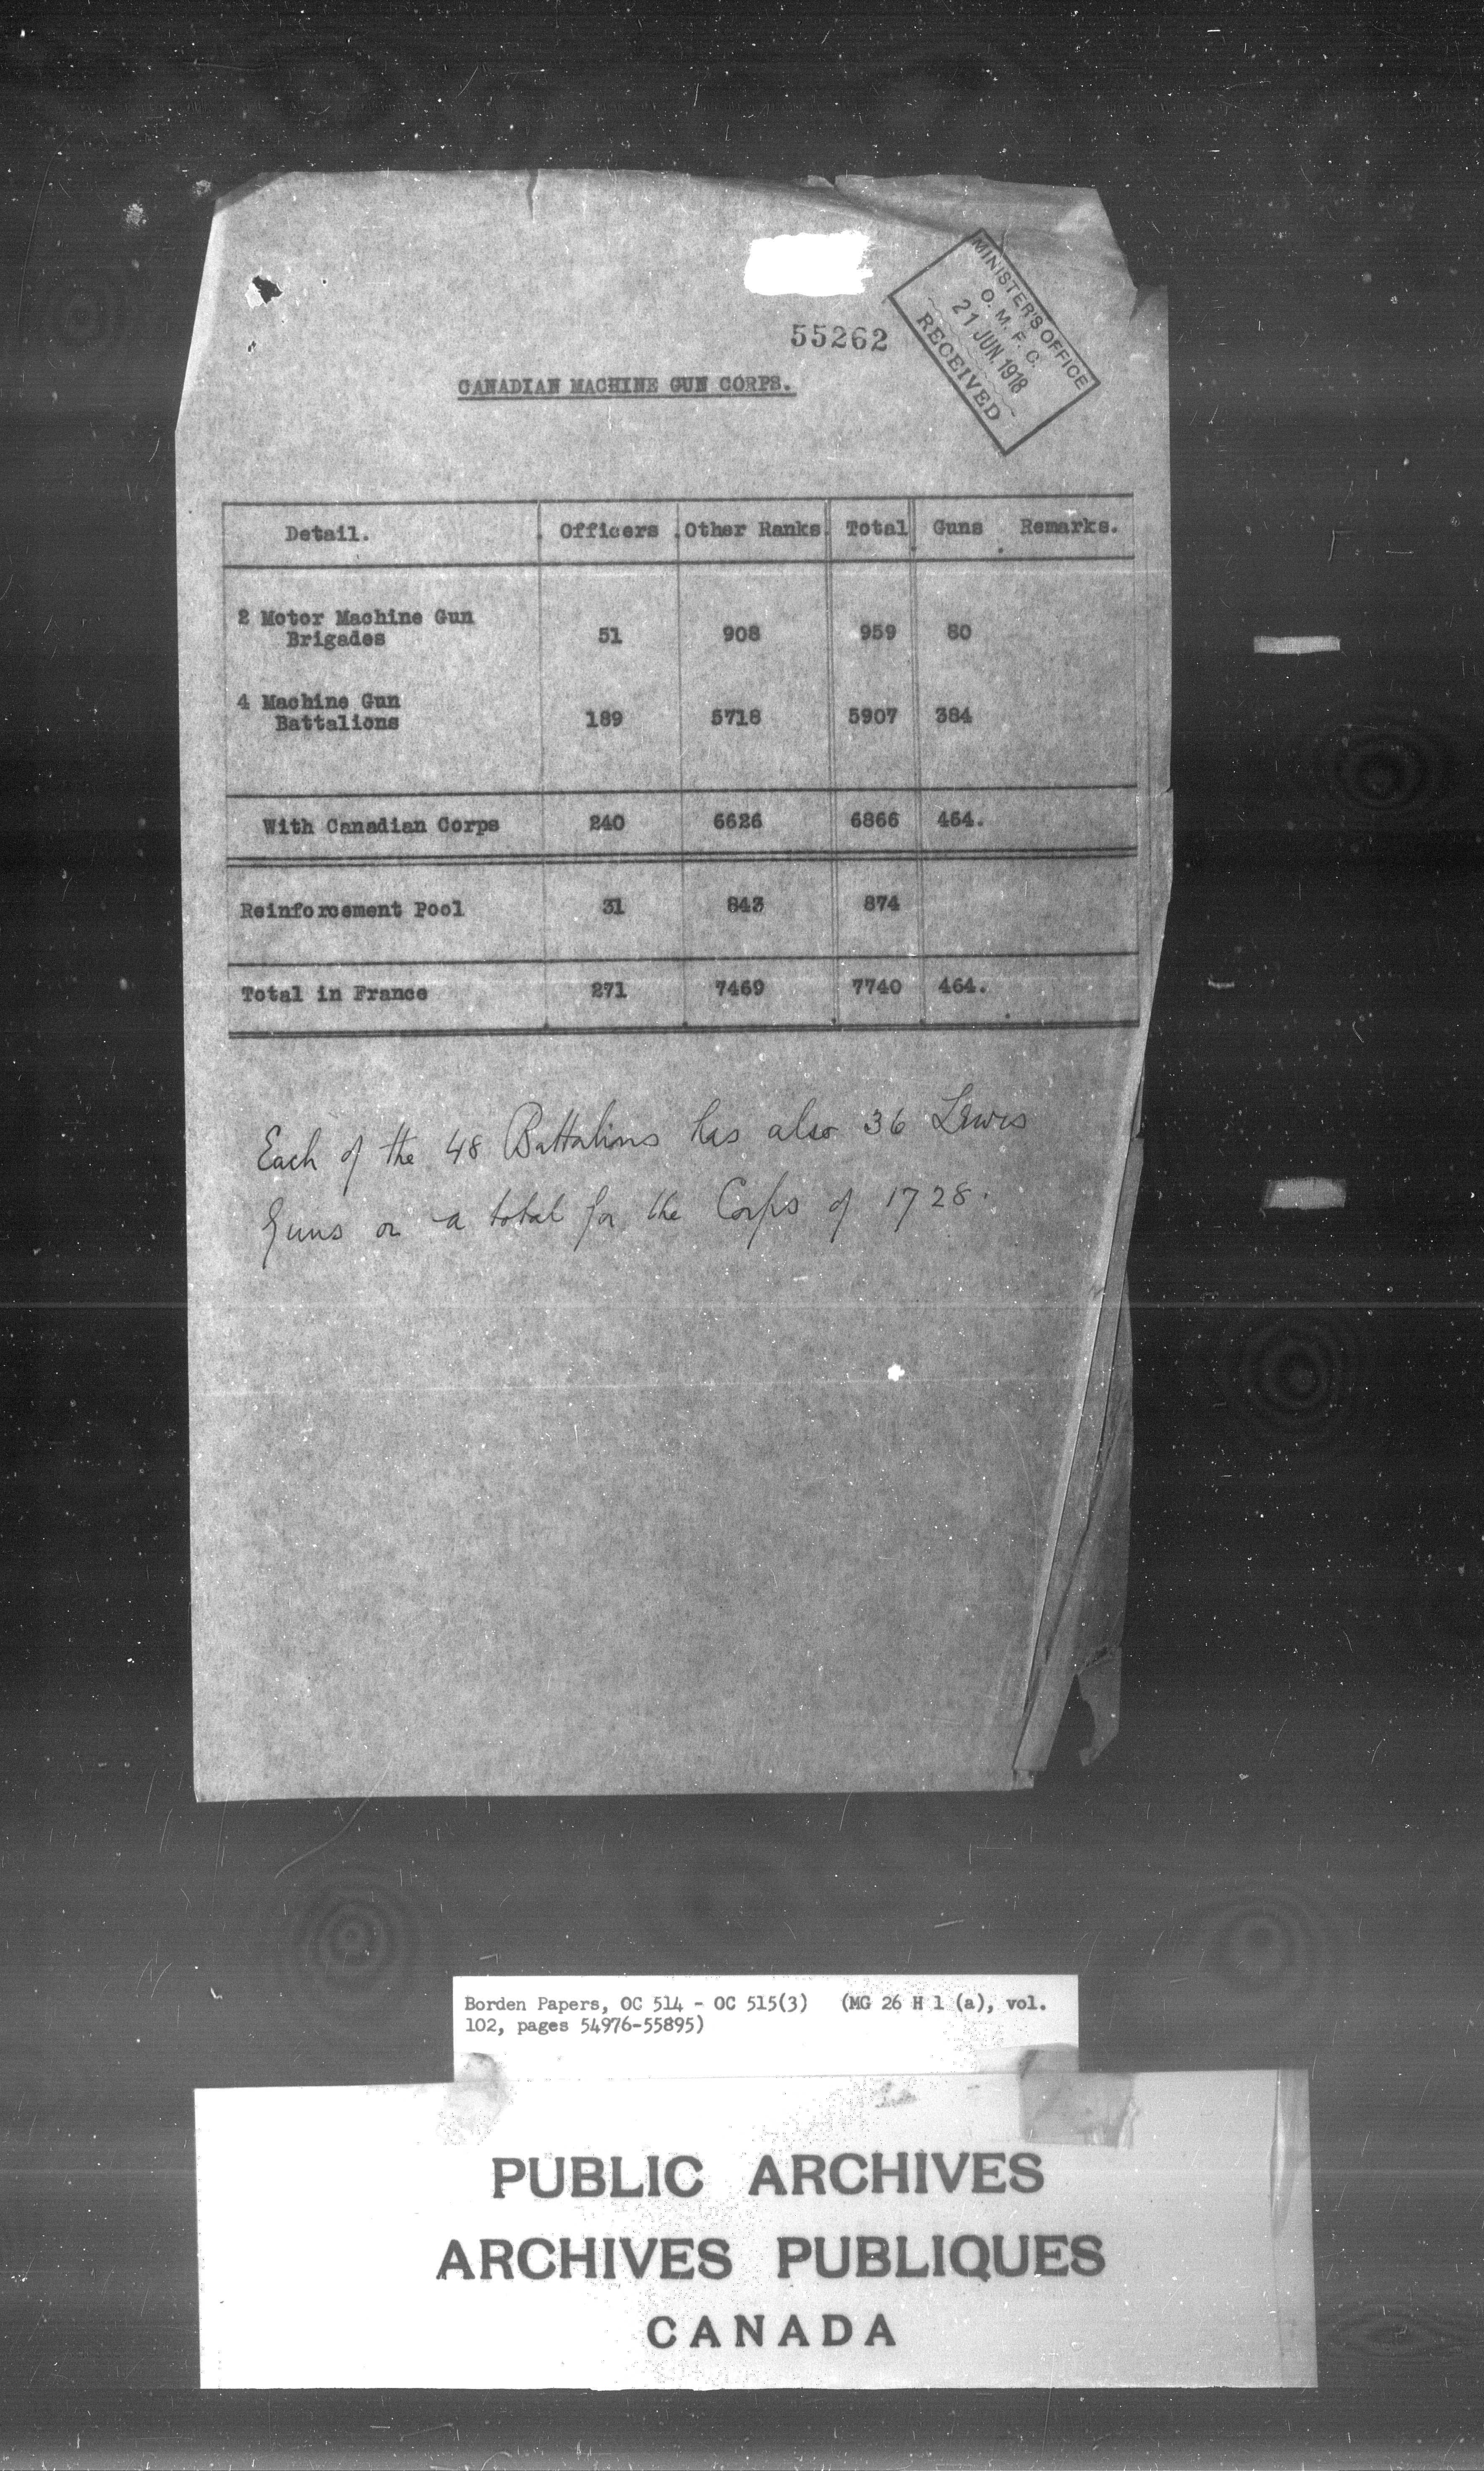 MINISTER'S OFFICE
O. M. F. C.
21 JUN. 1918
RECEIVED
55262
CANADIAN MACHINE GUN CORPS.
Detail. Officers Other Ranks Total Guns Remarks.
2 Motor Machine Gun
Brigades 51 908 959 80
4 Machine Gun
Battalions 189 5718 5907 384
With Canadian Corps 240 6626 6866 464.
Reinforcement Pool 31 843 874
Total in France 271 7469 7740 464.
Each of the 48 Battalions has also 36 Lewis
Guns or a total for the Corps of 1728.
Borden Papers, OC 514 - OC 515(3) (MG 26 H 1 (a), vol.
102, pages 54976-55895)
PUBLIC ARCHIVES
ARCHIVES PUBLIQUES
CANADA